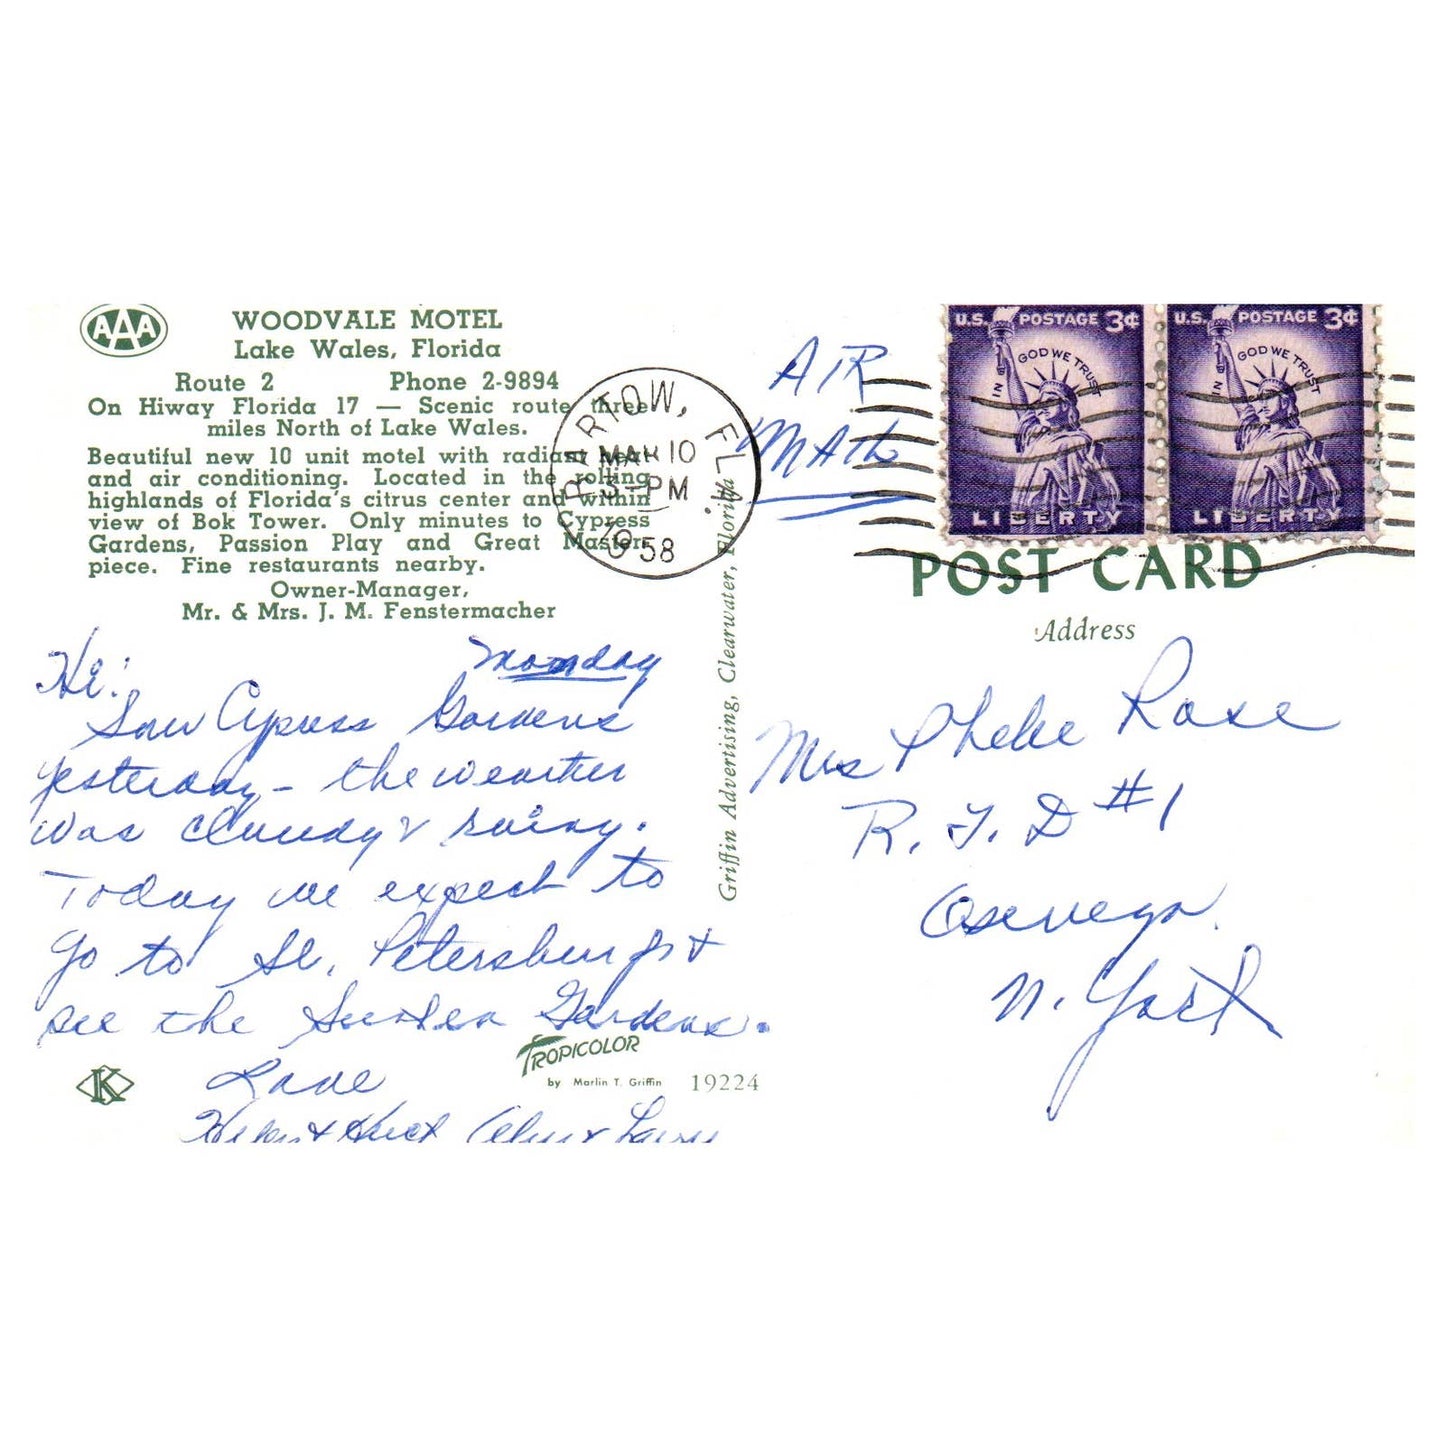 AAA
WOODVALE MOTEL
Lake Wales, Florida
Route 2 Phone 2-9894
On Hiway Florida 17 — Scenic route three
miles North of Lake Wales.
Beautiful new 10 unit motel with radiant heat
and air conditioning. Located in the rolling
highlands of Florida's citrus center and within
view of Bok Tower. Only minutes to Cypress
Gardens, Passion Play and Great Master-
piece. Fine restaurants nearby.
Owner-Manager,
Mr. & Mrs. J. M. Fenstermacher
Monday
Hi!
Saw Cypress Gardens
yesterday – the weather
was cloudy & rainy.
Today we expect to
go to St. Petersburg &
see the Sunken Gardens.
Love
Helen &
K
TROPICOLOR
by Marlin T. Griffin
19224
Griffin Advertising, Clearwater, Florida
BARTOW, FLA.
MAR 10
3-PM
1958
AIR
MAIL
U.S. POSTAGE 3¢
IN GOD WE TRUST
LIBERTY
U.S. POSTAGE 3¢
IN GOD WE TRUST
LIBERTY
POST CARD
Address
Mrs Phebe Rose
R. F. D #1
Oswego
N. York